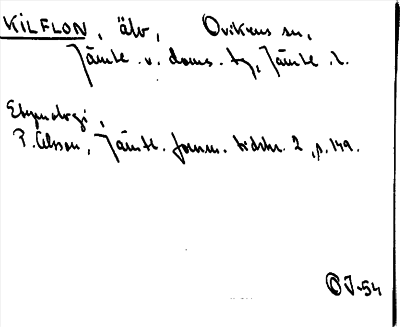 KILFLON, älv, Ovikens sn,
Jämtl. v. doms. tg, Jämtl. l.
Etymologi,
P. Olsson, Jämtl. fornm. tidskr. 2, p. 149.
OJ-54